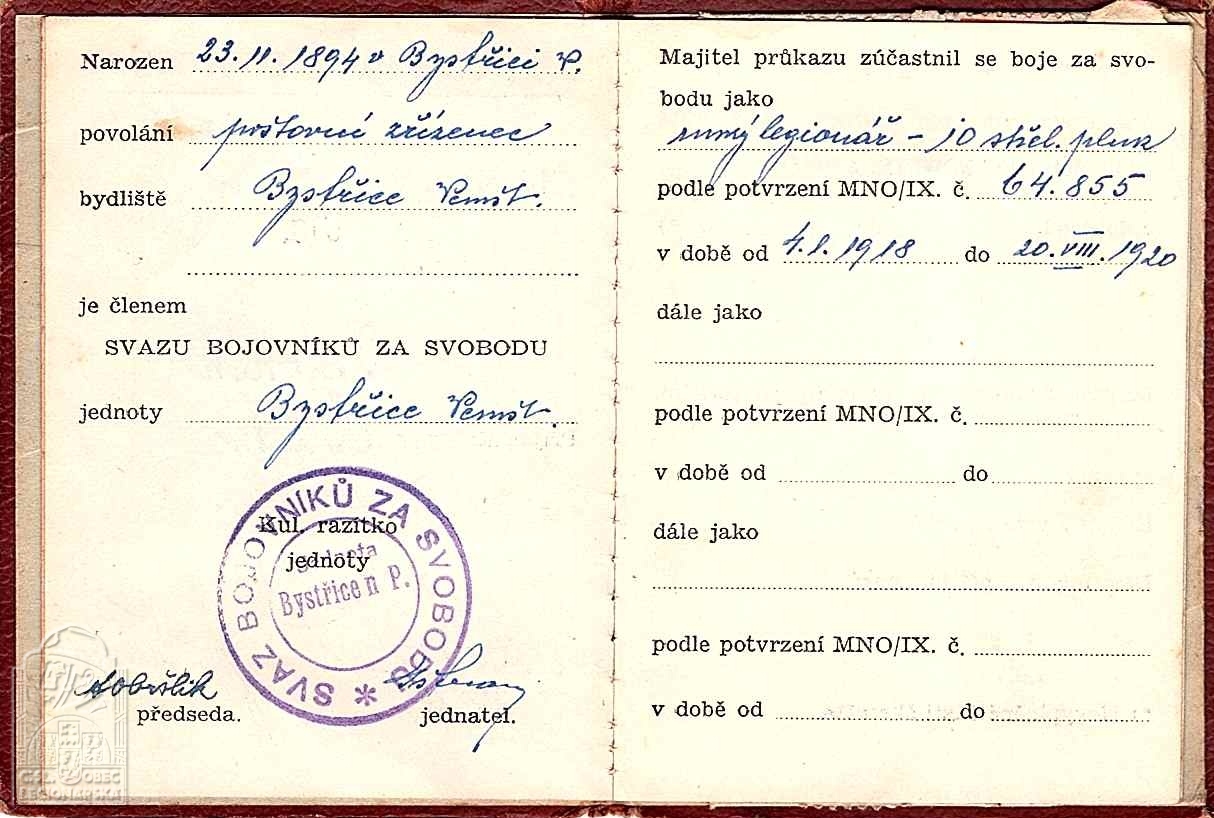 Narozen 23. 11. 1894 v Bystřici P.
povolání poštovní zřízenec
bydliště Bystřice Pernšt.
je členem
SVAZU BOJOVNÍKŮ ZA SVOBODU
jednoty Bystřice Pernšt.
SVAZ BOJOVNÍKŮ ZA SVOBODU *
Kul. razítko
jednoty
Jednota
Bystřice n P.
předseda.
jednatel.
ČSL. OBEC
LEGIONÁŘSKÁ
Majitel průkazu zúčastnil se boje za svo-
bodu jako
ruský legionář – 10 střel. pluk
podle potvrzení MNO/IX. č. 64.855
v době od 4.1.1918 do 20.VIII.1920
dále jako
podle potvrzení MNO/IX. č.
v době od do
dále jako
podle potvrzení MNO/IX. č.
v době od do